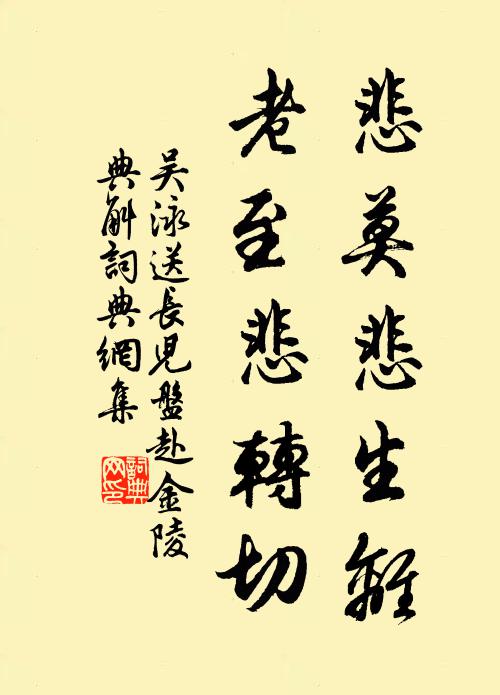 悲莫悲生離
老至悲轉切
吴泳送長兒盤赴金陵
典解詞典網集
詞典